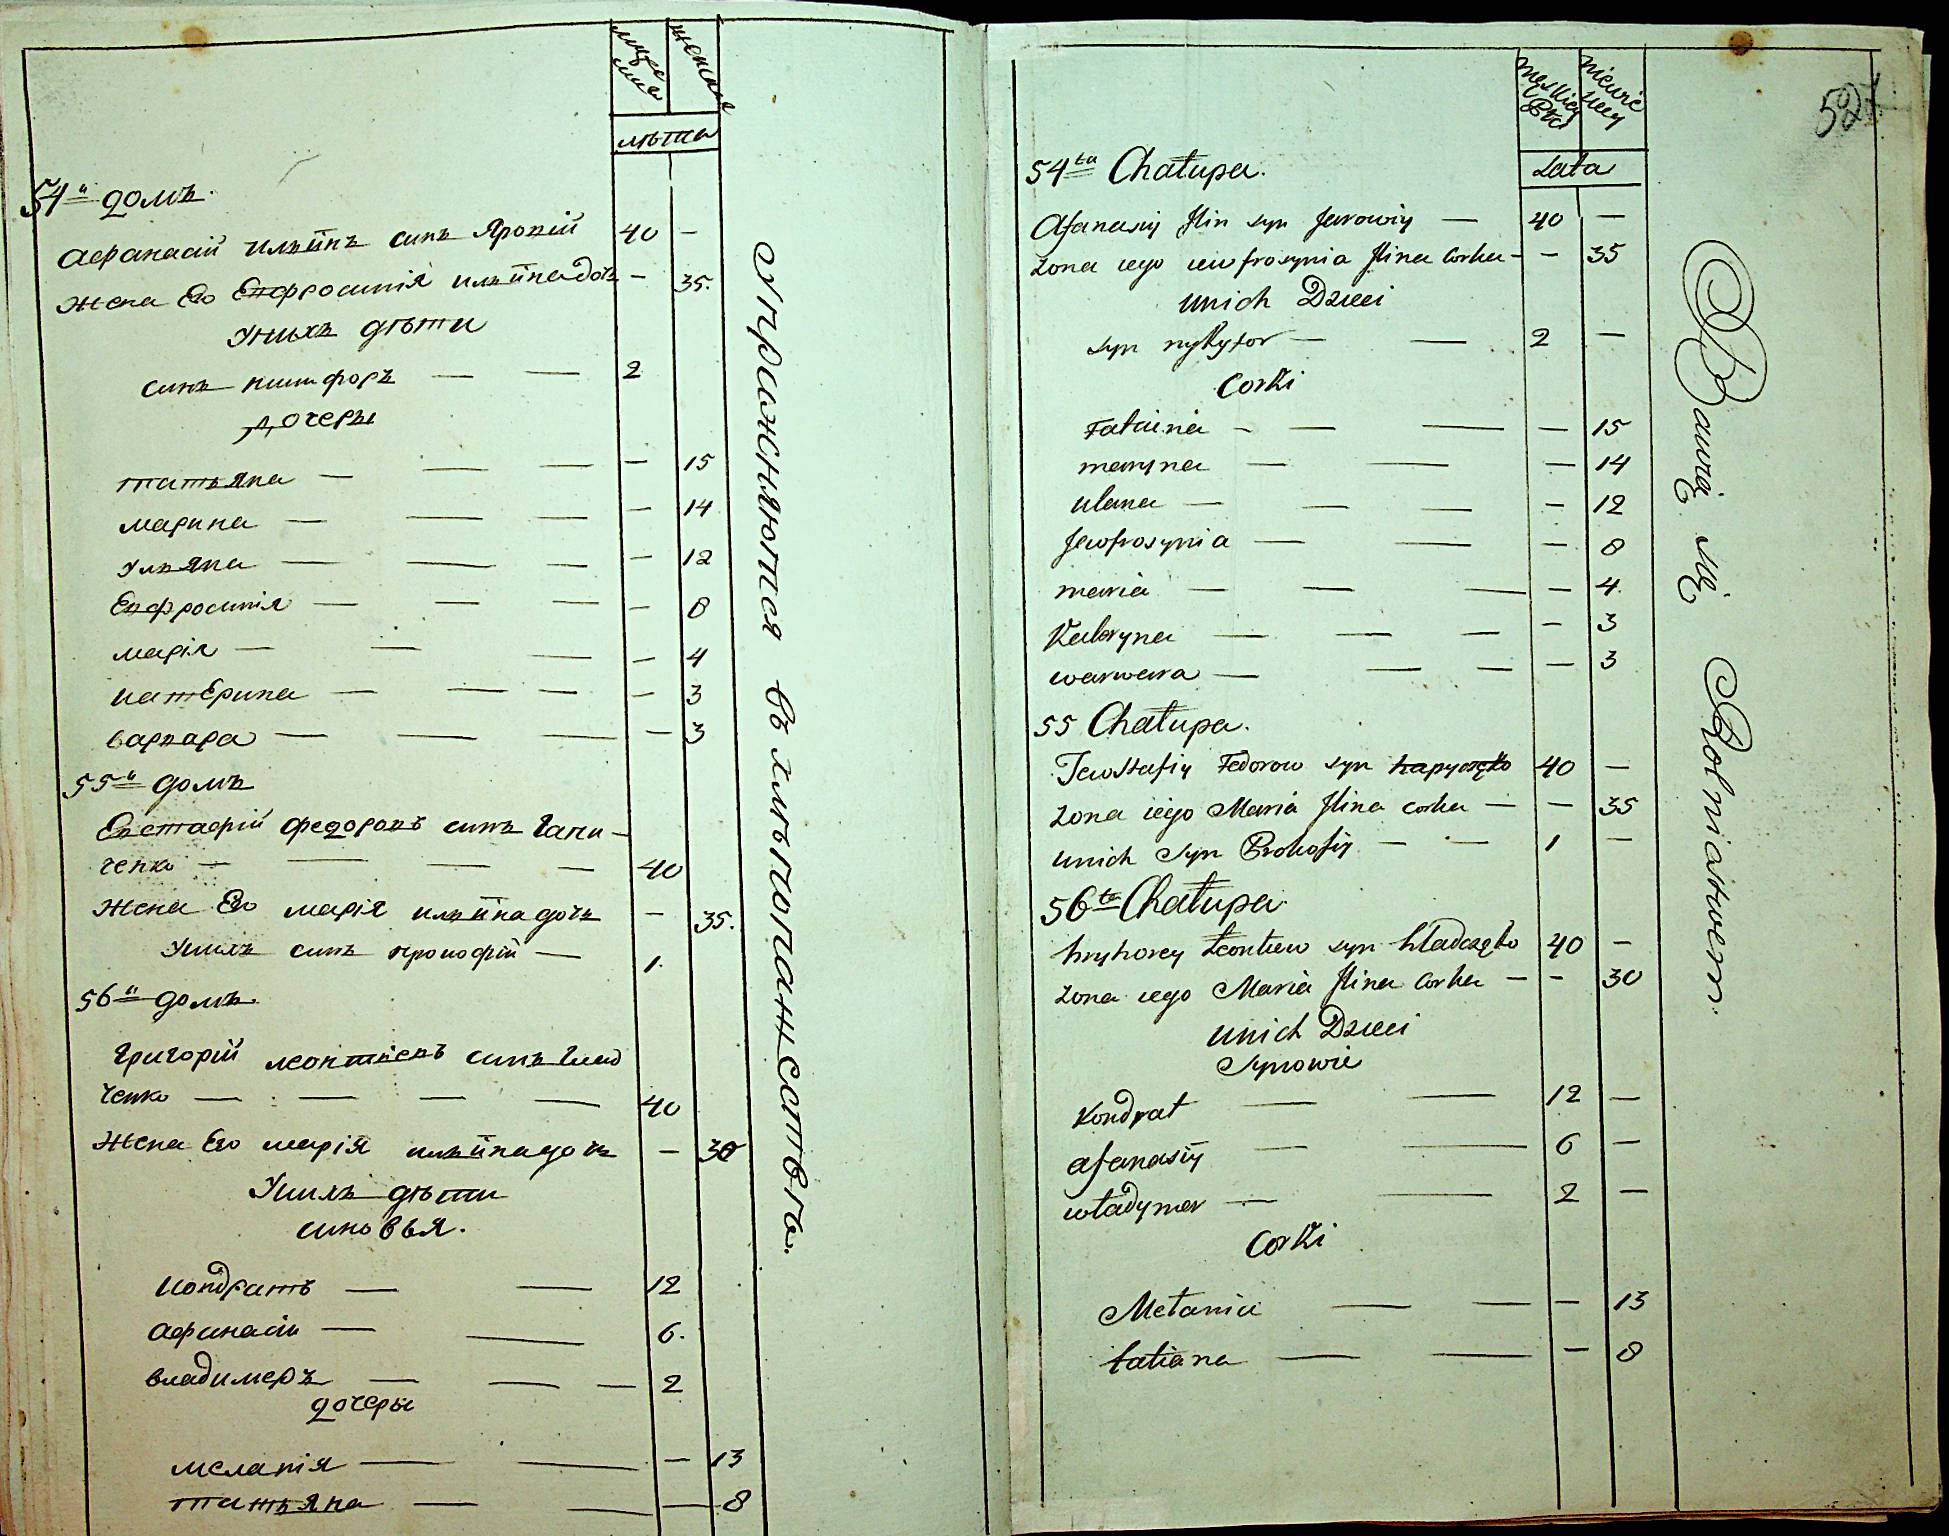 муже
ска
женска
лѣта
54й домъ.
Афанасій ильинъ синъ Яровій 40 —
Жена Его Евфросинія ильинадочь — 35.
Унихъ дѣти
синъ никифоръ — — 2
Дочеры
татьяна — — — — 15
марина — — — — 14
ульяна — — — — 12
Евфросинія — — — — 8
марія — — — — 4
катЕрина — — — — 3
варвара — — — — 3
55й домъ
Евстафій федоровъ синъ Гапи-
ченко — — — — 40
Жена Его марія ильинадочь — 35.
Унихъ синъ прокофій — 1.
56й домъ.
Григорій леонтіевъ синъ Глад
ченко — — — — 40
Жена Его марія ильинадочь — 30
Унихъ дѣти
синовья.
Кондратъ — — 12
Афанасій — — 6.
владимеръ — — — 2
дочеры
меланія — — — 13
татьяна — — — 8
Упражняются въ хлѣбопашествѣ.
męskiey
Płci
niewie
sciey
Lata
527
54ta Chałupa.
Afanasiy Ilin syn Jarowiy — 40 —
żona iego iewfrosynia Ilina Corka — — 35
unich Dzieci
syn nykyfor — — 2 —
Corki
Tatiania — — — — 15
maryna — — — 14
ulana — — — — 12
Jewfrosynia — — — 8
maria — — — — 4
Kateryna — — — — 3
warwara — — — — 3
55 Chałupa.
Jewstafiy Fedorow syn hapyczęko 40 —
żona iego Maria Ilina corka — — 35
unich Syn Prokofiy — — 1 —
56ta Chałupa.
hryhorey Leontiew syn hładczęko 40 —
żona iego Maria Ilina Corka — — 30
unich Dzieci
Synowie
Kondrat — — 12 —
afanasiy — — 6 —
władymer — — 2 —
Corki
Mełania — — — 13
tatiana — — — 8
Bawią się Rolnictwem.